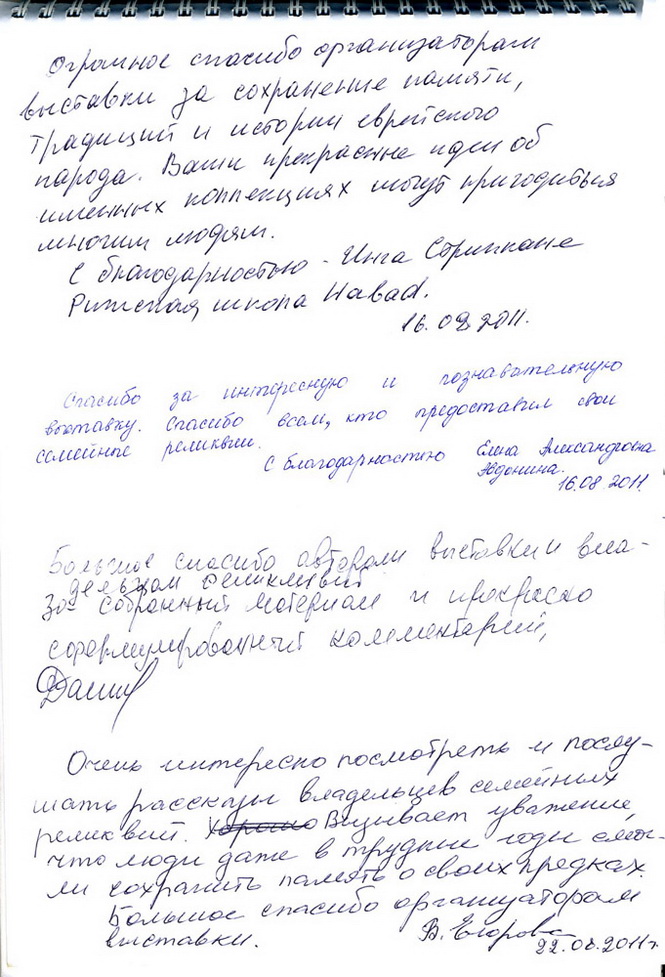 Огромное спасибо организаторам
выставки за сохранение памяти,
традиций и истории еврейского
народа. Ваши прекрасные идеи об
именных коллекциях могут пригодиться
многим людям.
С благодарностью - Инга
Рижская школа Habad.
16.08.2011.
Спасибо за интересную и познавательную
выставку. Спасибо всем, кто предоставил свои
семейные реликвии.
С благодарностью Елена Александровна
Евдокина.
16.08.2011.
Большое спасибо авторам выставки и вла-
дельцам реликвий
За собранный материал и прекрасно
сформулированный комментарий,
Очень интересно посмотреть и послу-
шать рассказы владельцев семейных
реликвий. Хорошо Вызывает уважение,
что люди даже в трудные годы смог-
ли сохранить память о своих предках.
Большое спасибо организаторам
выставки.
В. Егорова
22.08.2011г.